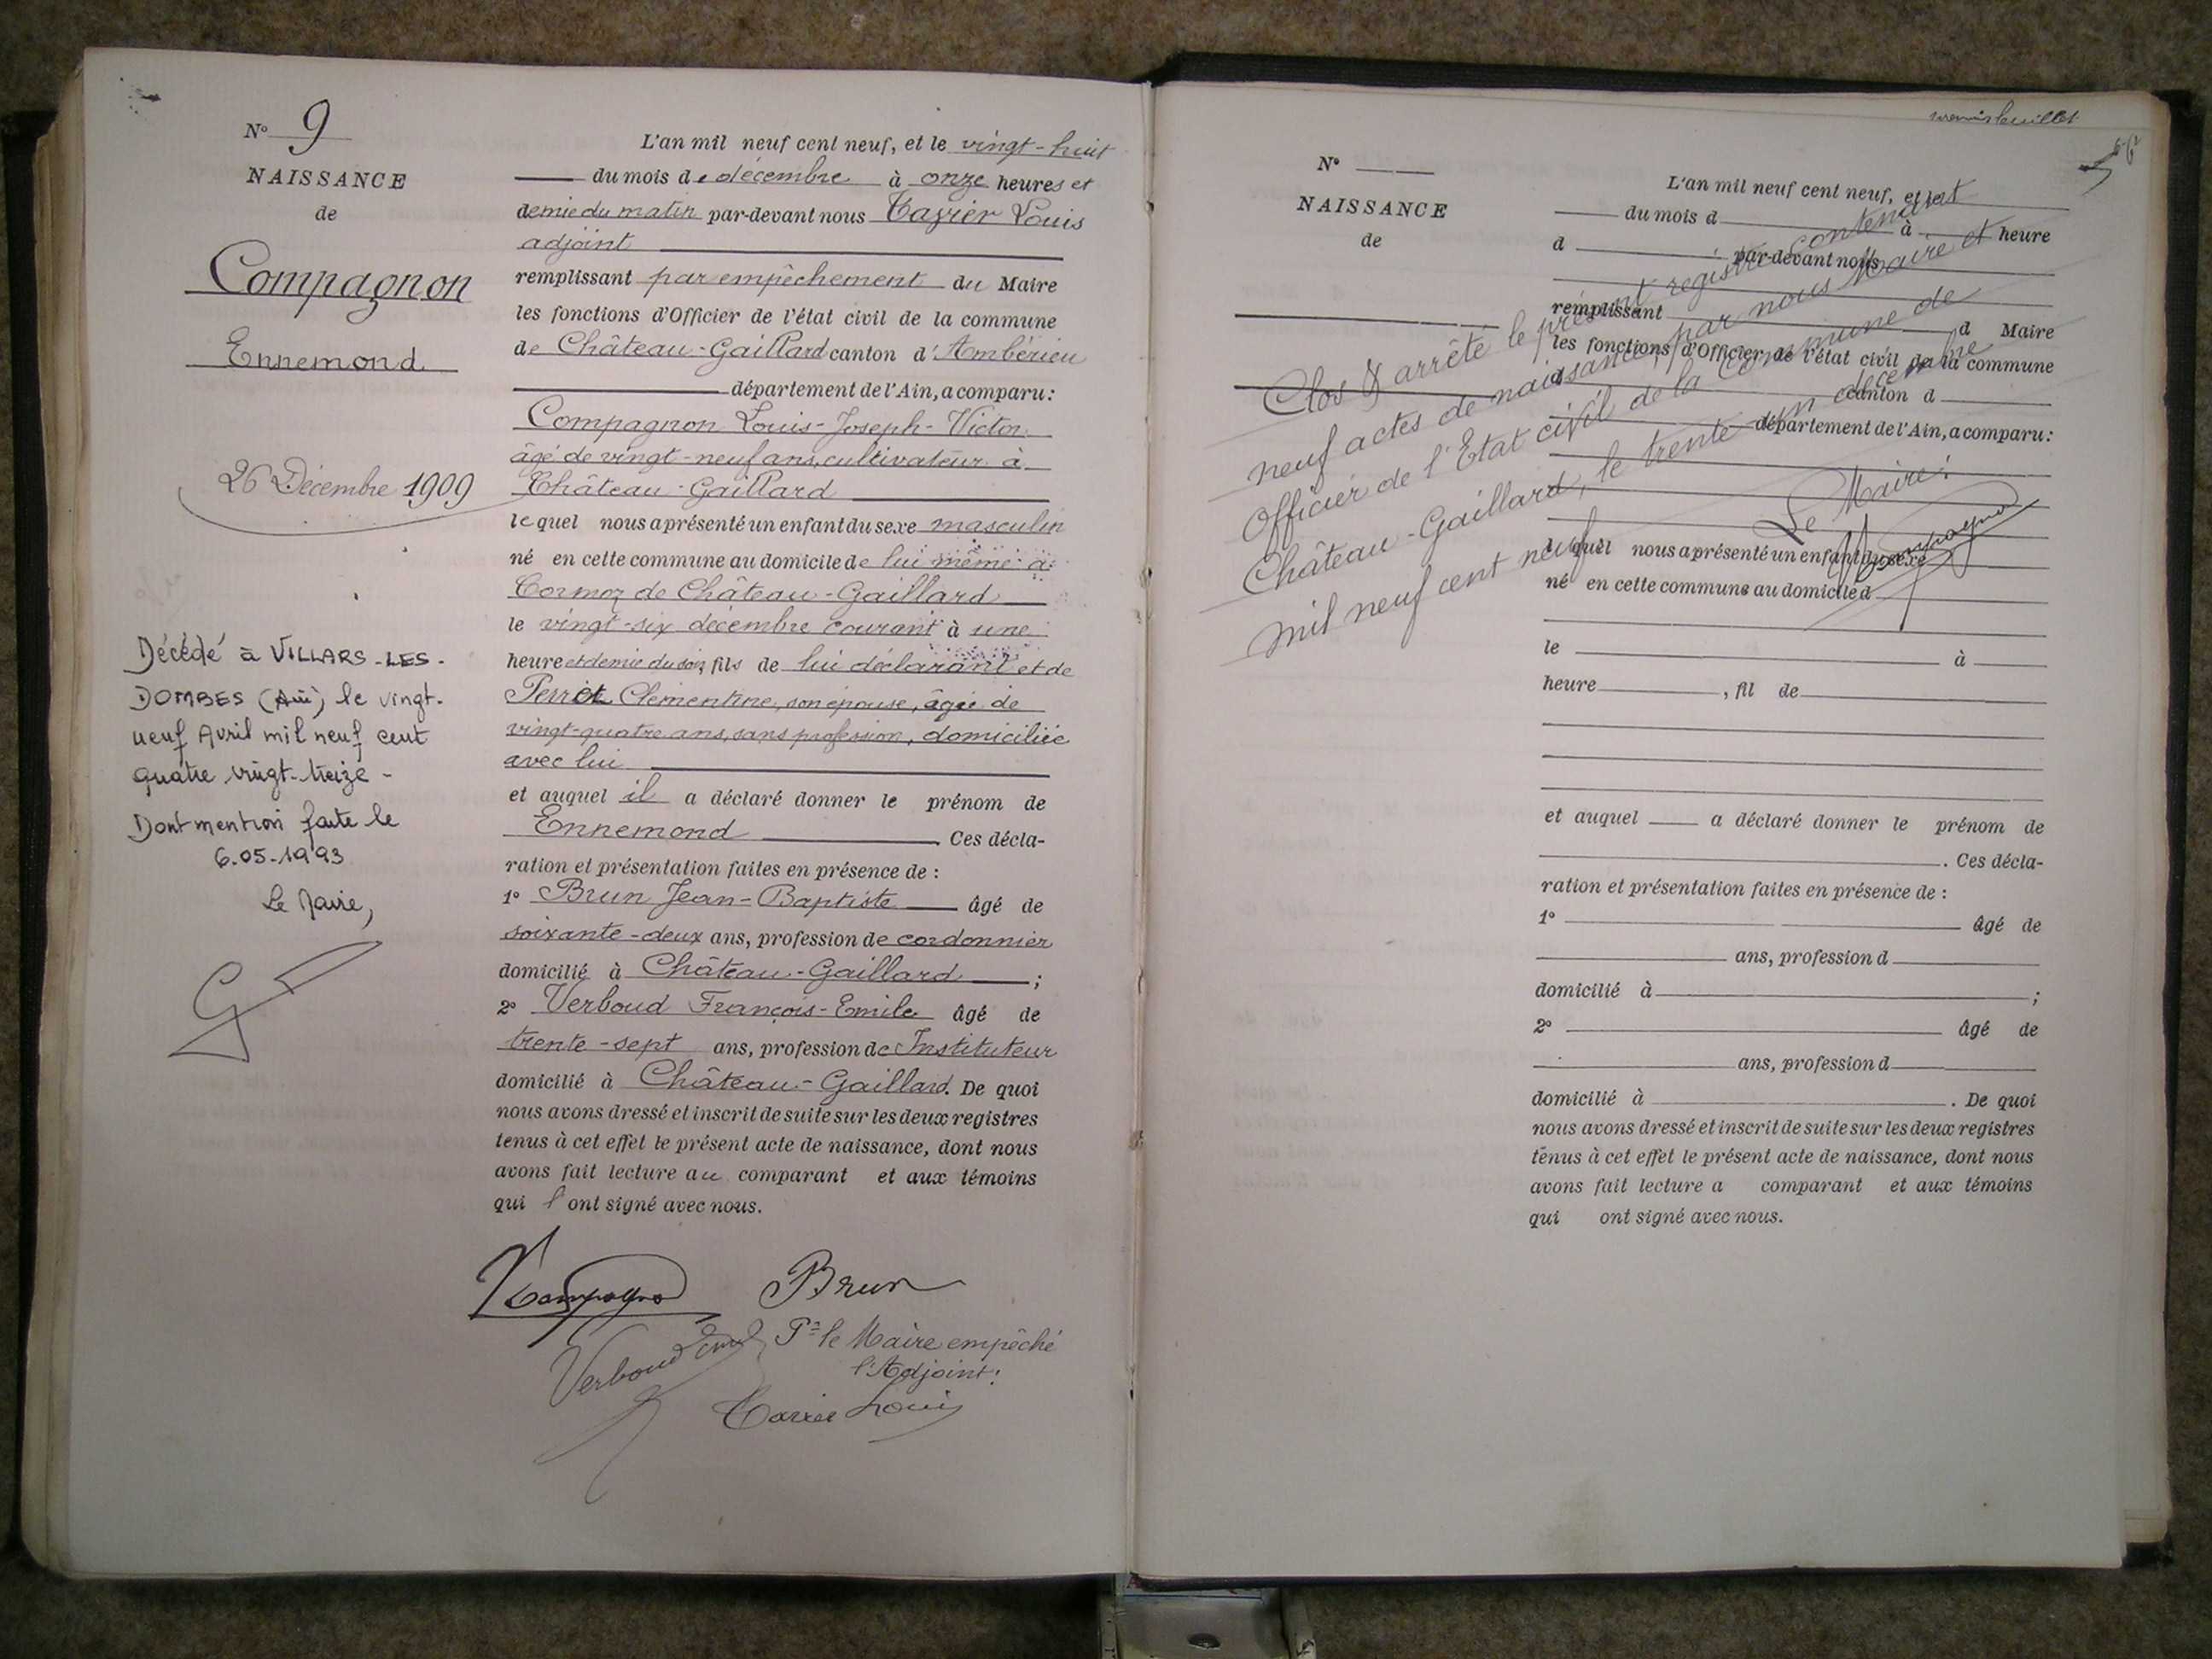 N° 9
NAISSANCE
de
Compagnon
Ennemond
26 Décembre 1909
Décédé à VILLARS-LES-
DOMBES (Ain) le vingt-
neuf Avril mil neuf cent
quatre vingt-treize -
Dont mention faite le
6.05.1993
Le Maire,
L'an mil neuf cent neuf, et le vingt-huit
du mois de décembre à onze heures et
demie du matin par-devant nous Tavier Louis
adjoint
remplissant par empêchement du Maire
les fonctions d'Officier de l'état civil de la commune
de Château-Gaillard canton d'Ambérieu
département de l'Ain, a comparu:
Compagnon Louis-Joseph-Victor
âgé de vingt-neuf ans, cultivateur à
Château-Gaillard
lequel nous a présenté un enfant du sexe masculin
né en cette commune au domicile de lui même à
Cormoz de Château-Gaillard
le vingt-six décembre courant à une
heure et demie du soir, fils de lui déclarant et de
Perret Clémentine, son épouse, âgée de
vingt-quatre ans, sans profession, domiciliée
avec lui
et auquel il a déclaré donner le prénom de
Ennemond . Ces décla-
ration et présentation faites en présence de :
1° Brun Jean-Baptiste âgé de
soixante-deux ans, profession de cordonnier
domicilié à Château-Gaillard ;
2° Verboud François-Emile âgé de
trente-sept ans, profession de Instituteur
domicilié à Château-Gaillard. De quoi
nous avons dressé et inscrit de suite sur les deux registres
tenus à cet effet le présent acte de naissance, dont nous
avons fait lecture au comparant et aux témoins
qui l'ont signé avec nous.
Compagnon Brun
Verboud Emile Pr le Maire empêché
l'Adjoint:
Tavier Louis
N°
NAISSANCE
de
L'an mil neuf cent neuf, et le
du mois d à heure
d par-devant nous
remplissant d Maire
les fonctions d'Officier de l'état civil de la commune
d canton d
département de l'Ain, a comparu:
Clos & arrêté le présent registre contenant
neuf actes de naissance, par nous Maire et
Officier de l'Etat civil de la Commune de
Château-Gaillard, le trente un décembre
mil neuf cent neuf.
Le Maire:
Compagnon
lequel nous a présenté un enfant du sexe
né en cette commune au domicile d
le à
heure , fil de
et auquel a déclaré donner le prénom de
. Ces décla-
ration et présentation faites en présence de :
1° âgé de
ans, profession d
domicilié à ;
2° âgé de
ans, profession d
domicilié à . De quoi
nous avons dressé et inscrit de suite sur les deux registres
tenus à cet effet le présent acte de naissance, dont nous
avons fait lecture a comparant et aux témoins
qui ont signé avec nous.